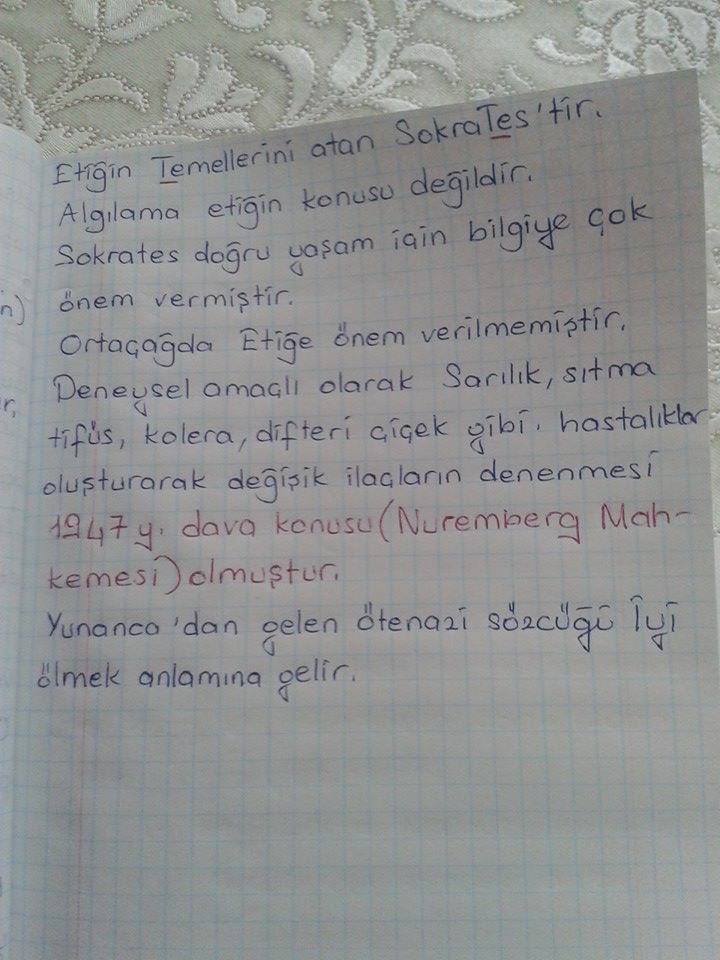 Etiğin Temellerini atan SokraTes'tir.
Algılama etiğin konusu değildir.
n) Sokrates doğru yaşam için bilgiye çok
önem vermiştir.
Ortaçağda Etiğe önem verilmemiştir.
r, Deneysel amaçlı olarak Sarılık, sıtma
tifüs, kolera, difteri çiçek gibi. hastalıklar
oluşturarak değişik ilaçların denenmesi
1947 y. dava konusu (Nuremberg Mah-
kemesi) olmuştur.
Yunanca'dan gelen ötenazi sözcüğü İyi
ölmek anlamına gelir.